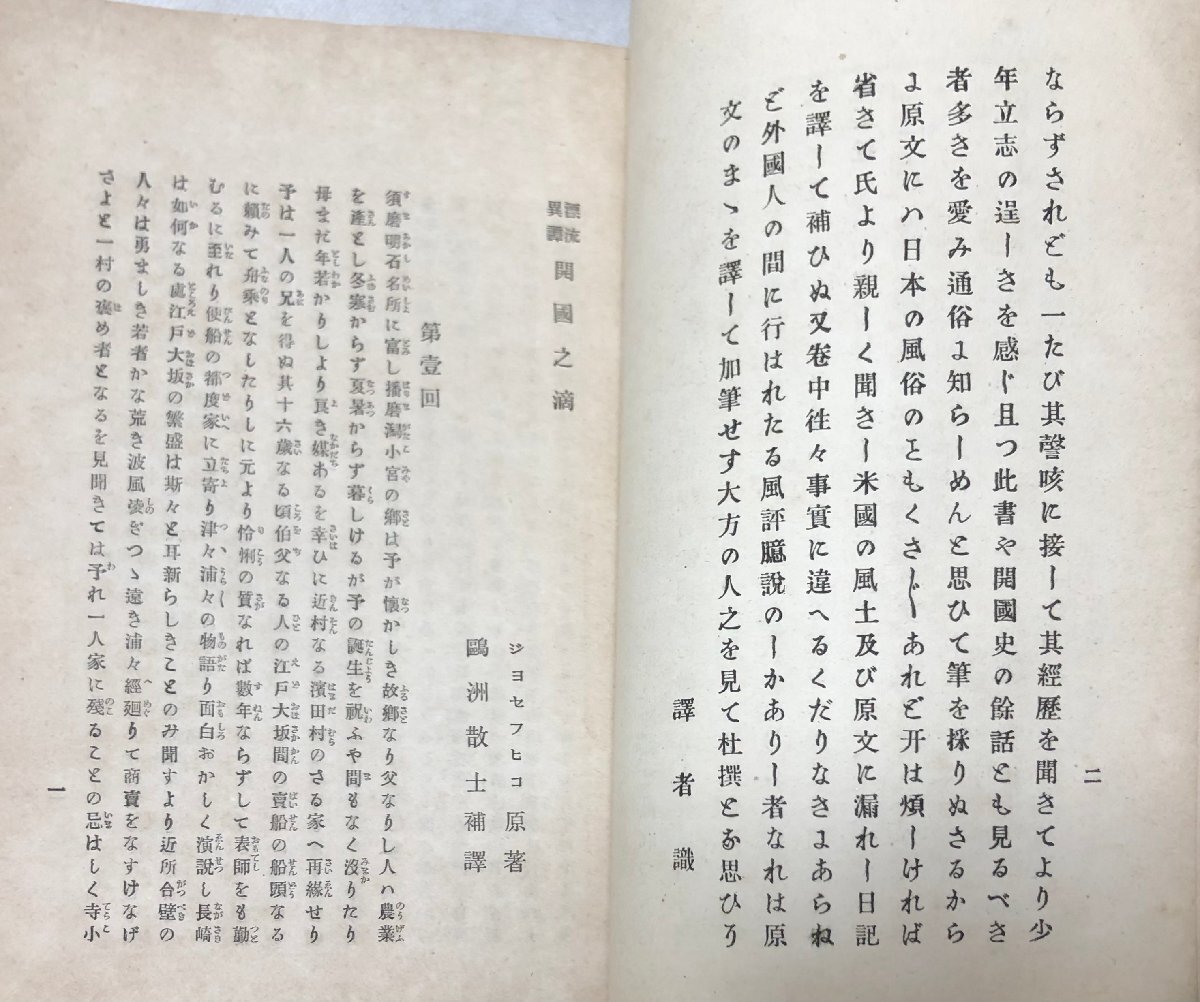 ならずされども一たび其謦咳に接して其經歷を聞きてより少
年立志の逞しさを感じ且つ此書や開國史の餘話とも見るべき
者多きを愛み通俗よ知らしめんと思ひて筆を採りぬさるから
よ原文にハ日本の風俗のこともくさ〴〵あれど开は煩しければ
省きて氏より親しく聞きし米國の風土及び原文に漏れし日記
を譯して補ひぬ又卷中徃々事實に違へるくだりなきよあらね
ど外國人の間に行はれたる風評臆說のしかありし者なれは原
文のまゝを譯して加筆せす大方の人之を見て杜撰とな思ひう
譯者識
二
漂流異譚 開國之滴
ジヨセフヒコ原著
鷗洲散士補譯
第壹回
須磨明石名所に富し播磨潟小宮の鄕は予が懷かしき故鄕なり父なりし人ハ農業
を產とし冬寒からず夏暑からず暮しけるが予の誕生を祝ふや間もなく沒りたり
母まだ年若かりしより良き媒あるを幸ひに近村なる濱田村のさる家へ再緣せり
予は一人の兄を得ぬ其十六歲なる頃伯父なる人の江戶大坂間の賣船の船頭なる
に賴みて舟乘となしたりしに元より怜悧の質なれば數年ならずして表師をも勤
むるに至れり便船の都度家に立寄り津々浦々の物語り面白おかしく演說し長崎
は如何なる處江戶大坂の繁盛は斯々と耳新らしきことのみ聞すより近所合壁の
人々は勇ましき若者かな荒き波風凌ぎつゝ遠き浦々經廻りて商賣をなすけなげ
さよと一村の褒め者となるを見聞きては予れ一人家に殘ることの忌はしく寺小
一